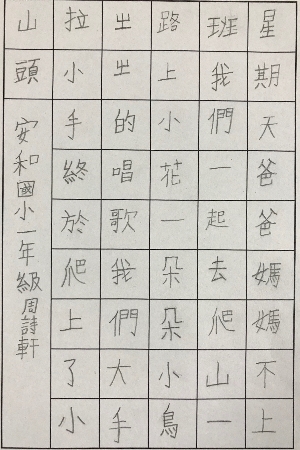 星期天爸爸媽媽不上
班我們一起去爬山一
路上小花一朵朵小鳥
ㄓㄓ的唱歌我們大手
拉小手終於爬上了小
山頭
安和國小一年級周詩軒